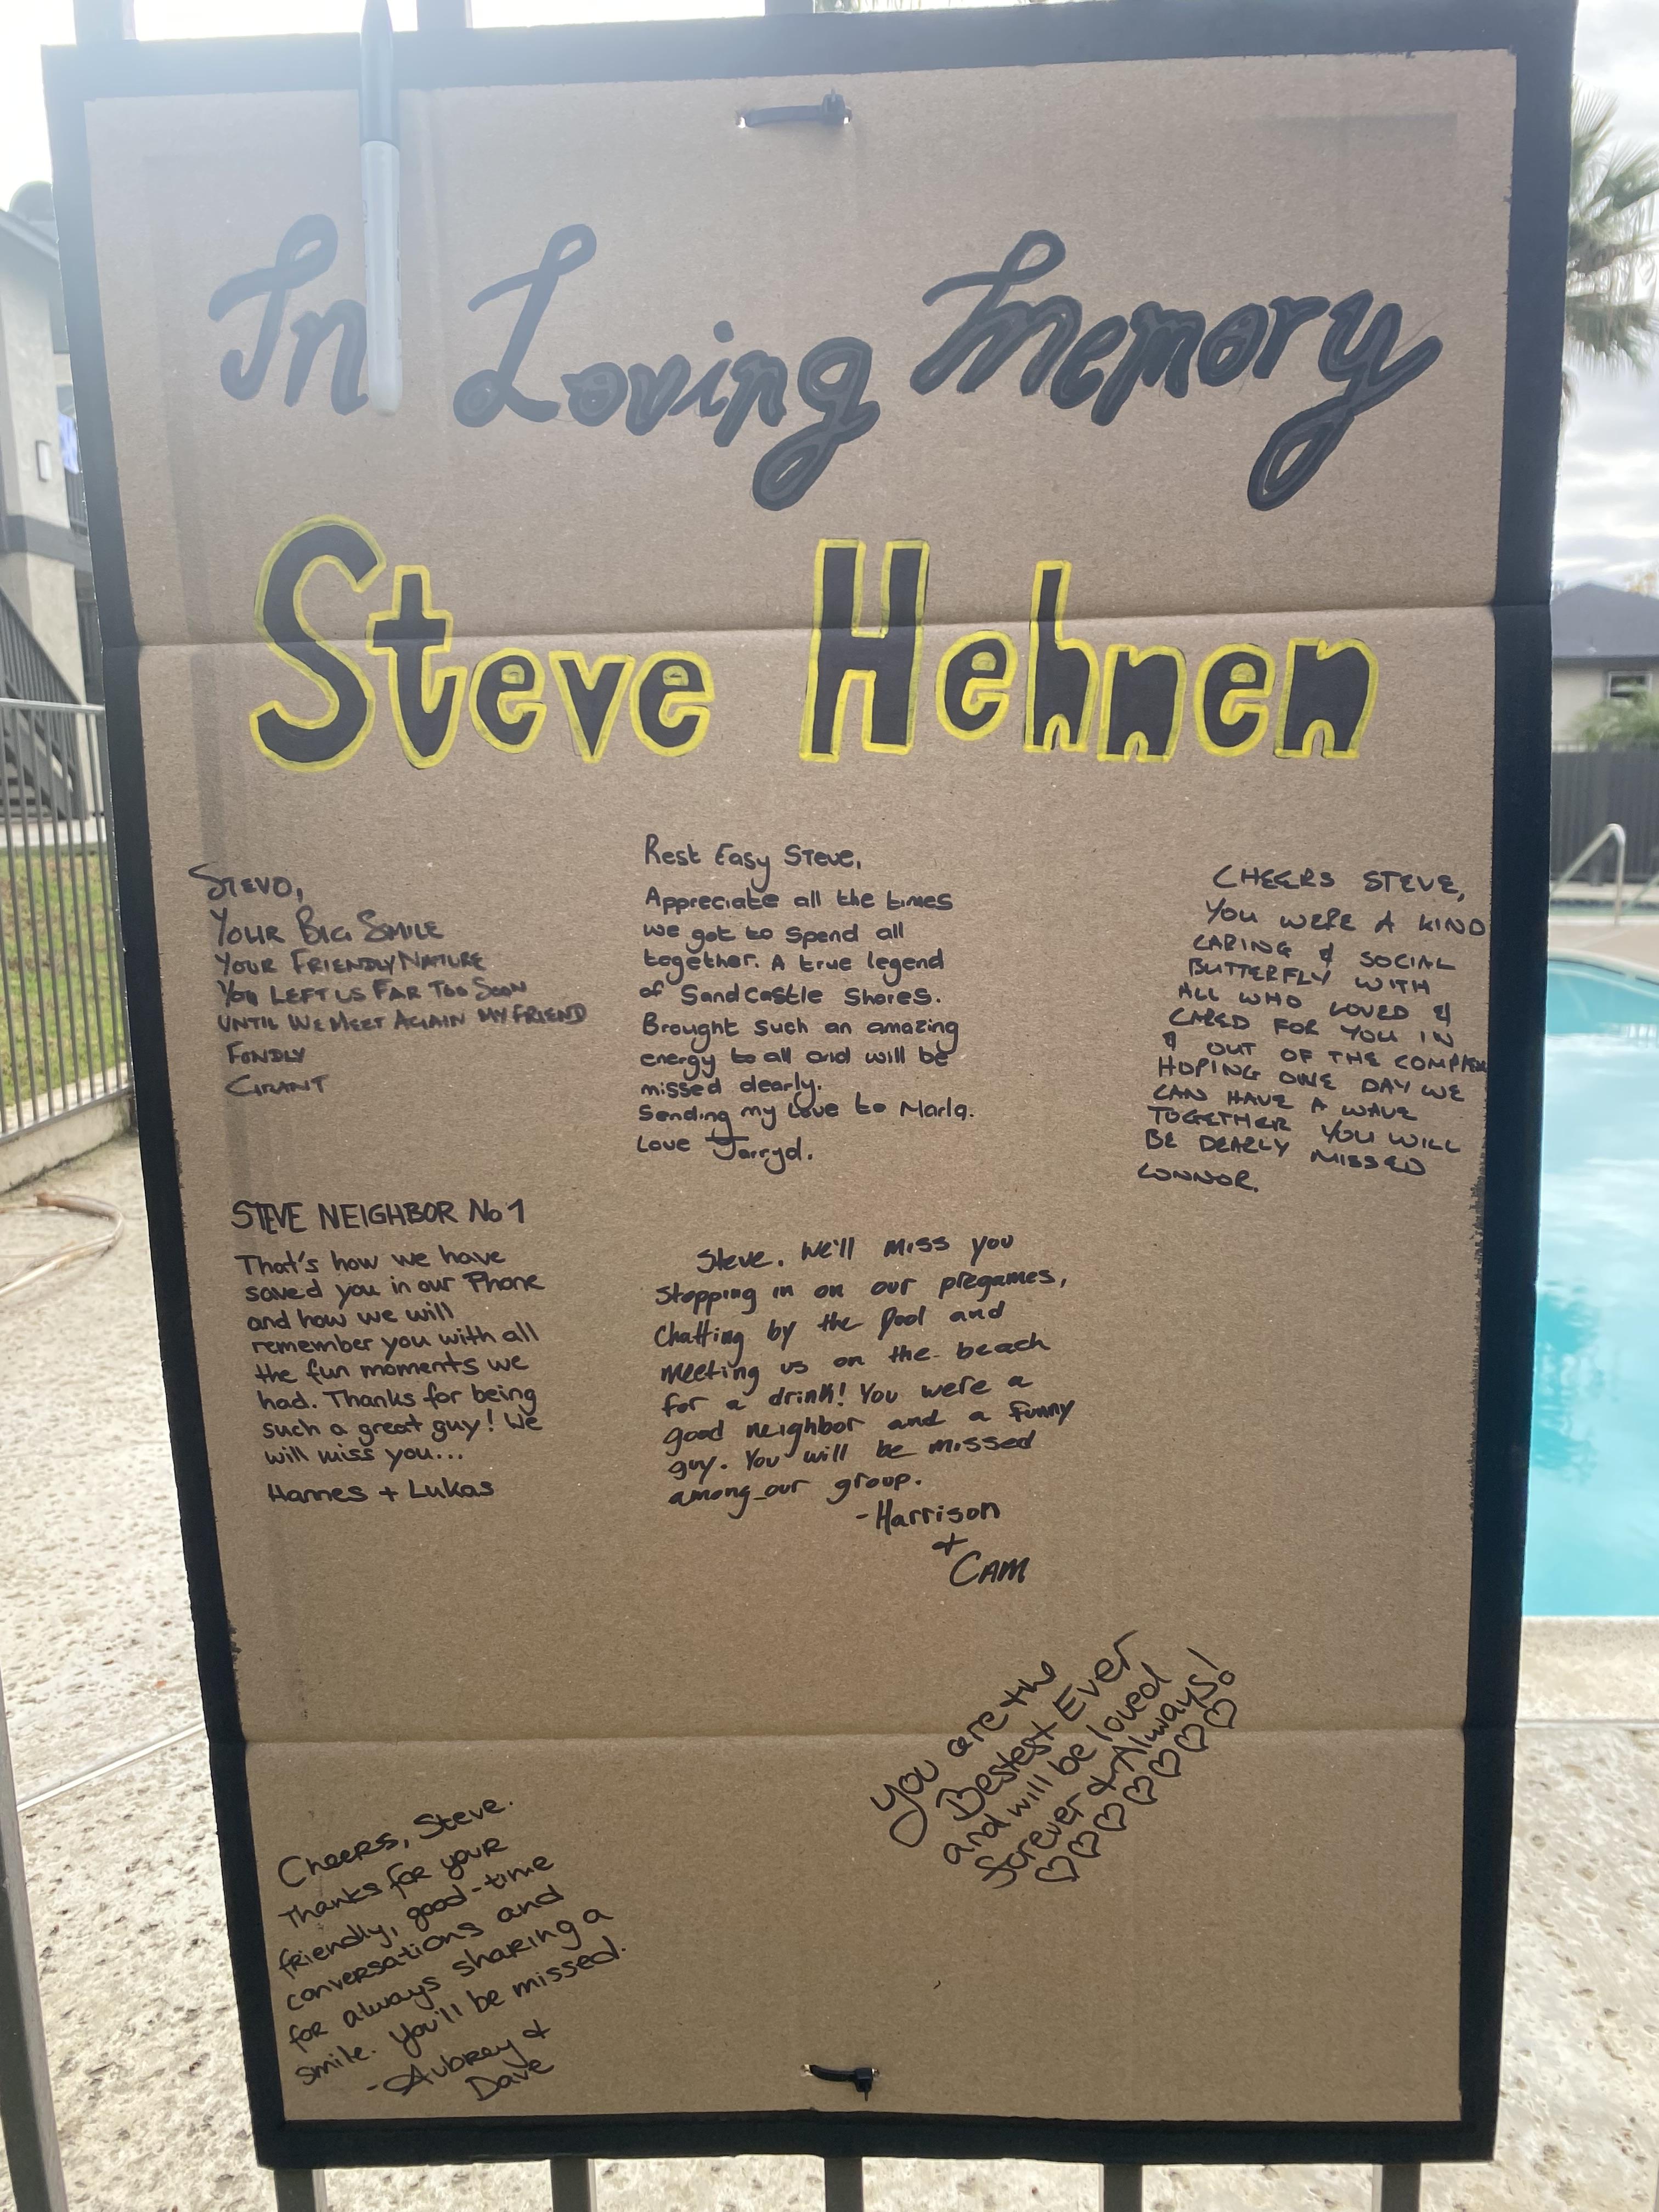 In Loving Memory
Steve Hehnen
STEVO,
YOUR BIG SMILE
YOUR FRIENDLY NATURE
YOU LEFT US FAR TOO SOON
UNTIL WE MEET AGAIN MY FRIEND
FONDLY
GRANT
Rest Easy Steve,
Appreciate all the times
we got to spend all
together. A true legend
of Sandcastle Shores.
Brought such an amazing
energy to all and will be
missed dearly.
Sending my Love to Marla.
Love Jarryd.
CHEERS STEVE,
YOU WERE A KIND
CARING & SOCIAL
BUTTERFLY WITH
ALL WHO LOVED &
CARED FOR YOU IN
& OUT OF THE COMPLEX
HOPING ONE DAY WE
CAN HAVE A WAVE
TOGETHER YOU WILL
BE DEARLY MISSED
CONNOR.
STEVE NEIGHBOR No 1
That's how we have
saved you in our Phone
and how we will
remember you with all
the fun moments we
had. Thanks for being
such a great guy! We
will miss you...
Hannes + Lukas
Steve, We'll miss you
stopping in on our pregames,
chatting by the pool and
meeting us on the beach
for a drink! You were a
good neighbor and a funny
guy. You will be missed
among our group.
-Harrison
+
CAM
You are the
Bestest Ever
and will be loved
forever & Always!
♡♡♡♡♡♡
Cheers, Steve.
Thanks for your
friendly, good-time
conversations and
for always sharing a
smile. You'll be missed.
-Aubrey &
Dave